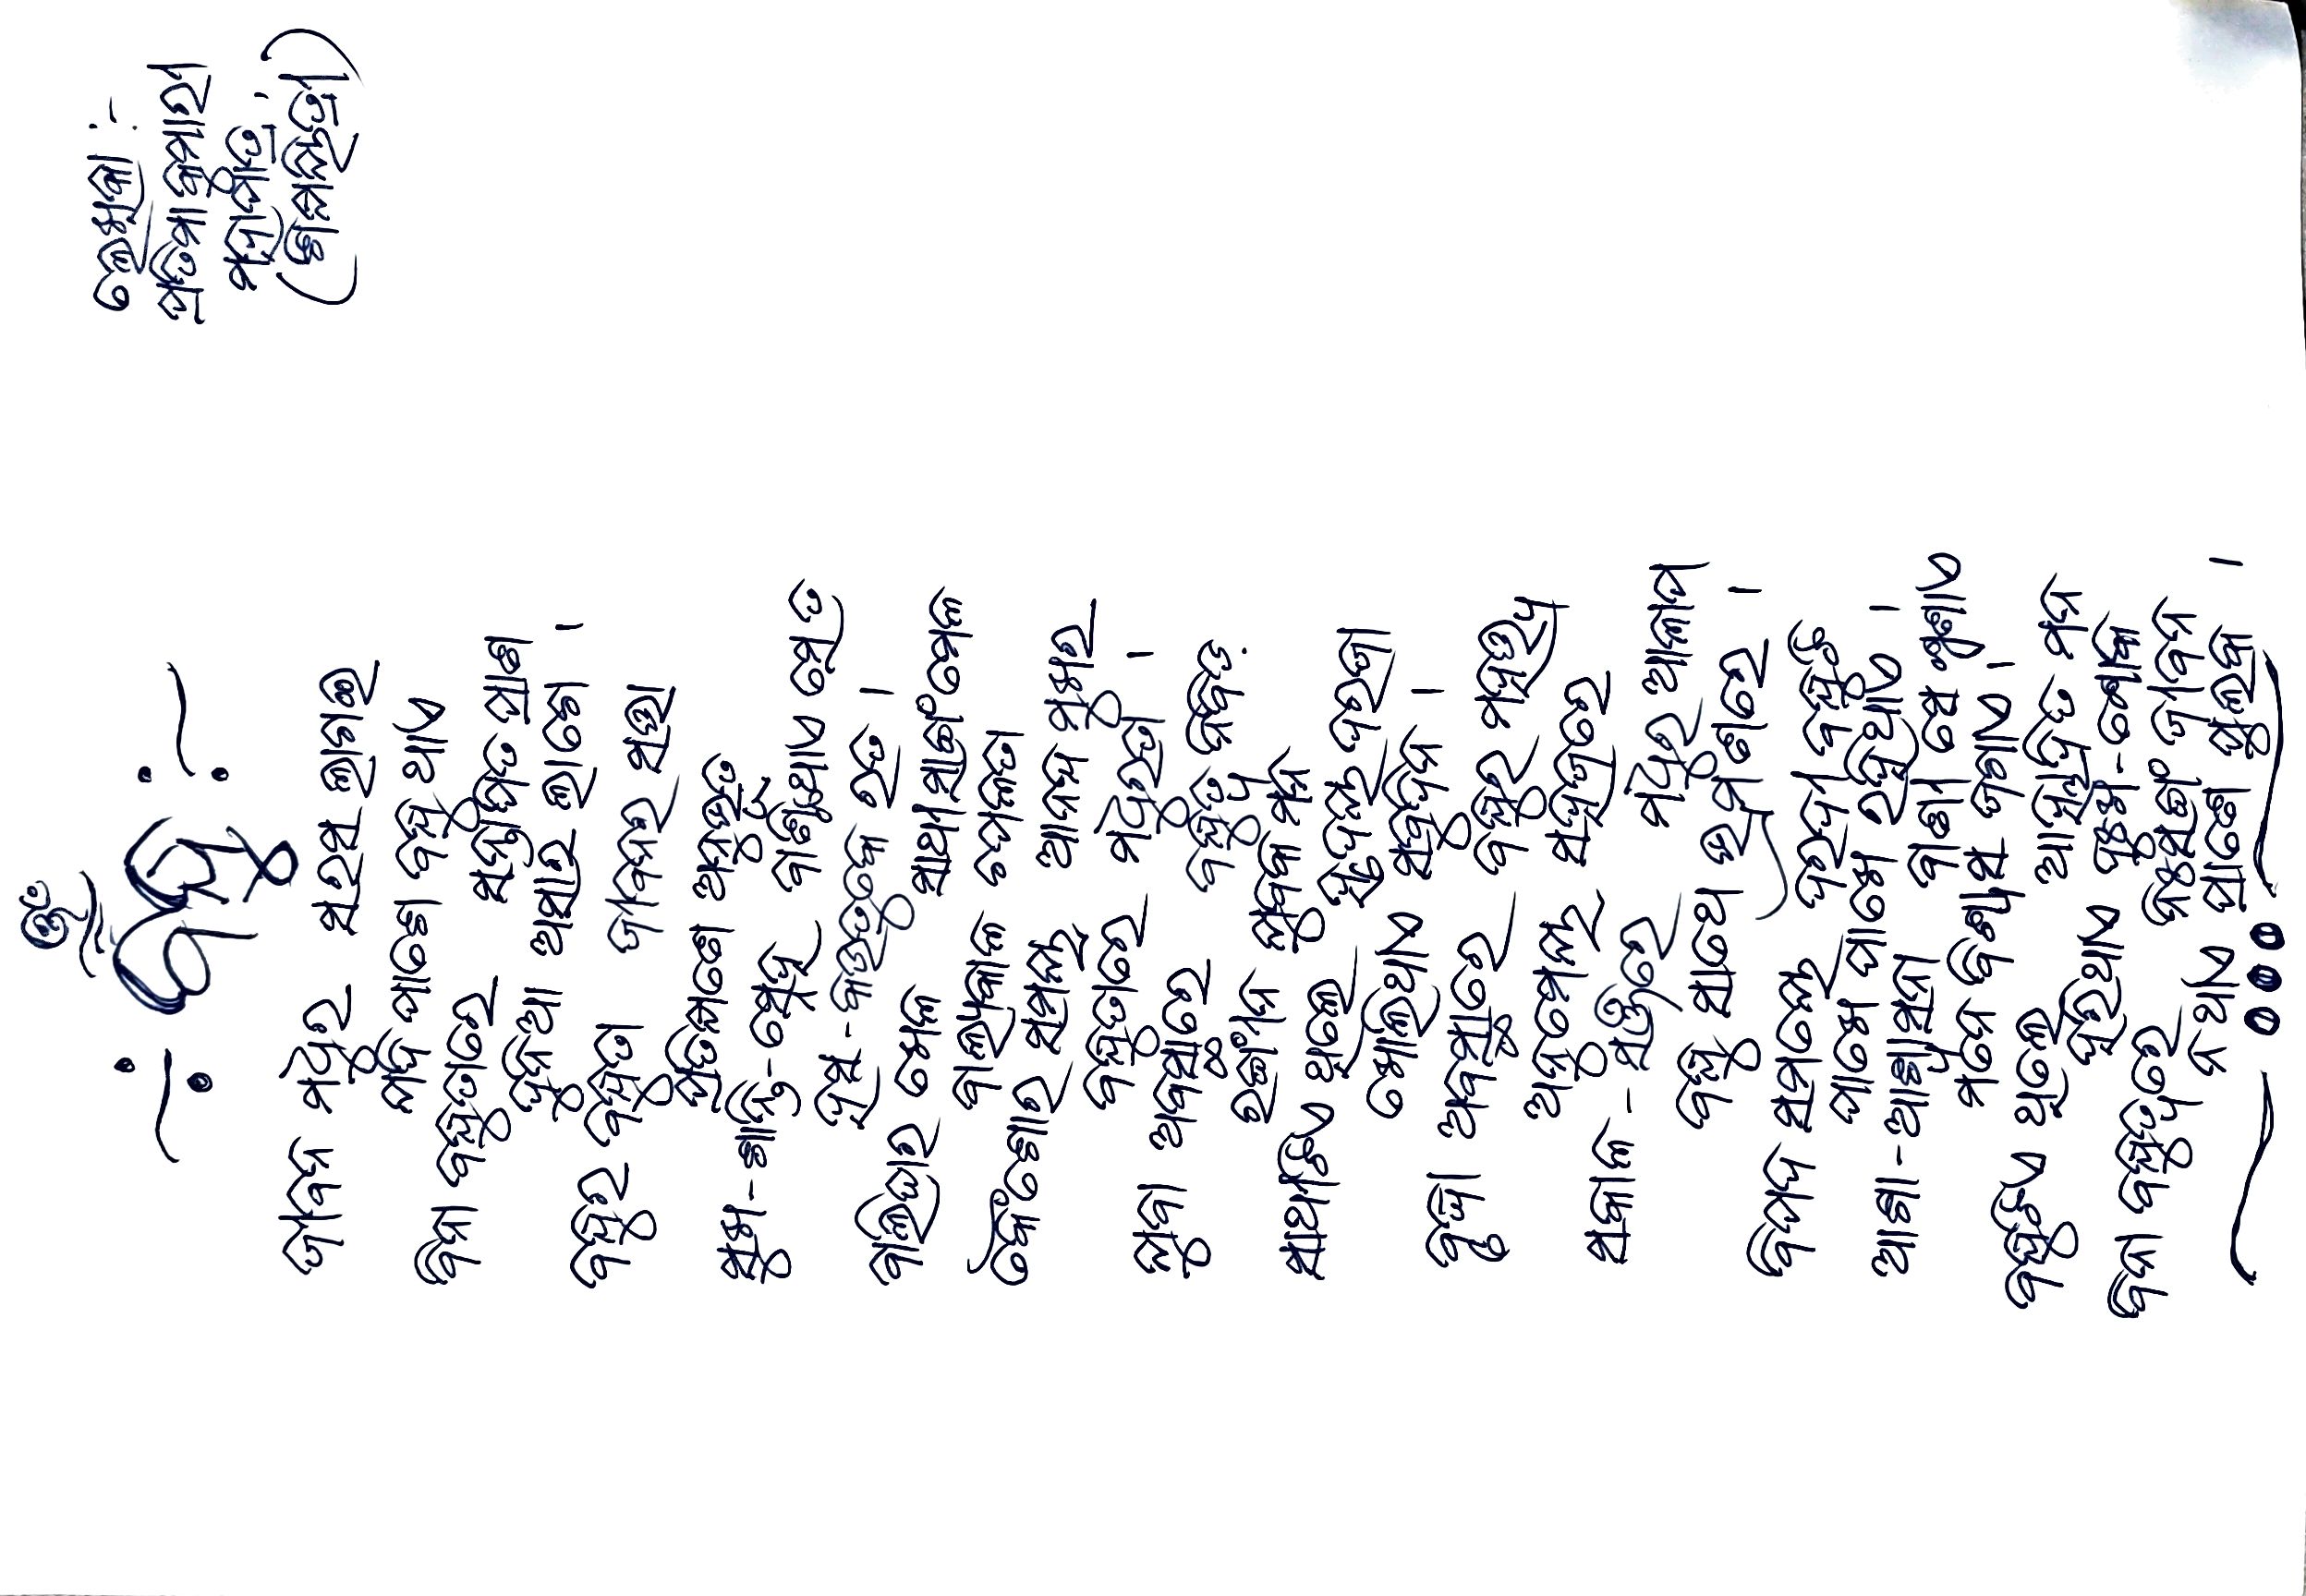 ଓଁ
ବନ୍ଧୁ
ଲେଖିକା :-
ପ୍ରତିମା କୁମାରୀ
ମହାପାତ୍ର,
(ଶିକ୍ଷୟିତ୍ରୀ)
ଜୀବନ ମଧୁର ସରସ ଲାଗଇ
ଯଦି ପାଶେ ବନ୍ଧୁ ଥାଏ
ବିନା ବନ୍ଧୁତାରେ ସନ୍ତାପିତ ପ୍ରାଣ
ଦୁନିଆ ଅସାର ଲାଗେ ।
ବନ୍ଧୁର ବନ୍ଧୁତା ଜୀବନର ସତ୍ତା
ପ୍ରତିକ୍ଷଣେ ଅନୁଭୂତ
ସୁଖ-ଶାନ୍ତି-ସ୍ନେହ ବାଣ୍ଟିଥାଏ ସେ ତ
ହସ-କଉତୁକେ ରତ ।
ବାଲିଘର ଖେଳ ସାଥୀ ସାଙ୍ଗ ମେଳ
ବାଲ୍ୟକାଳ ଚପଳତା
କୈଶୋର ସମୟ ଆନନ୍ଦ ମୁଖର
ବନ୍ଧୁତାରେ ମଧୁରତା ।
ଯୁବା ଅବସ୍ଥାରେ ବନ୍ଧୁତ୍ୱ ନିବିଡ଼
ରଙ୍ଗୀନ ଯୁବକ ମନ
ସାଥୀଟିଏ ଥିଲେ ହୃଦୟ ଦରଜା
ଖୋଲିଥାଏ ସବୁଦିନ ।
ବୃଦ୍ଧା ଅବସ୍ଥାରେ ବନ୍ଧୁର ମହତ୍ତ୍ୱ
ଅନୁମେୟ ସହଜରେ
ସକାଳ - ସଞ୍ଜରେ ମଧୁର ଆଳାପ
ବନ୍ଧୁ ସାଥେ ଭ୍ରମଣରେ ।
ବିପଦ ସମୟେ ଦରଦୀ ବନ୍ଧୁଟି
ପାଖେ ପାଖେ ରହିଥାଏ ।
ଆଶା-ଆଶ୍ୱାସନା ବାଣୀ ସେ ଶୁଣାଏ
ମନେ ବିଶ୍ୱାସ ଜଗାଏ ।
ବନ୍ଧୁଟିଏ ଥିଲେ ଆହ୍ଲାଦିତ ମନ
ହରିଥାଏ ଦୁଃଖ-ଶୋକ
ବିନା ବନ୍ଧୁତ୍ୱରେ ନିଃସଙ୍ଗ ଜୀବନ
ନ ଥାଏ ପ୍ରାଣେ ପୁଲକ ।